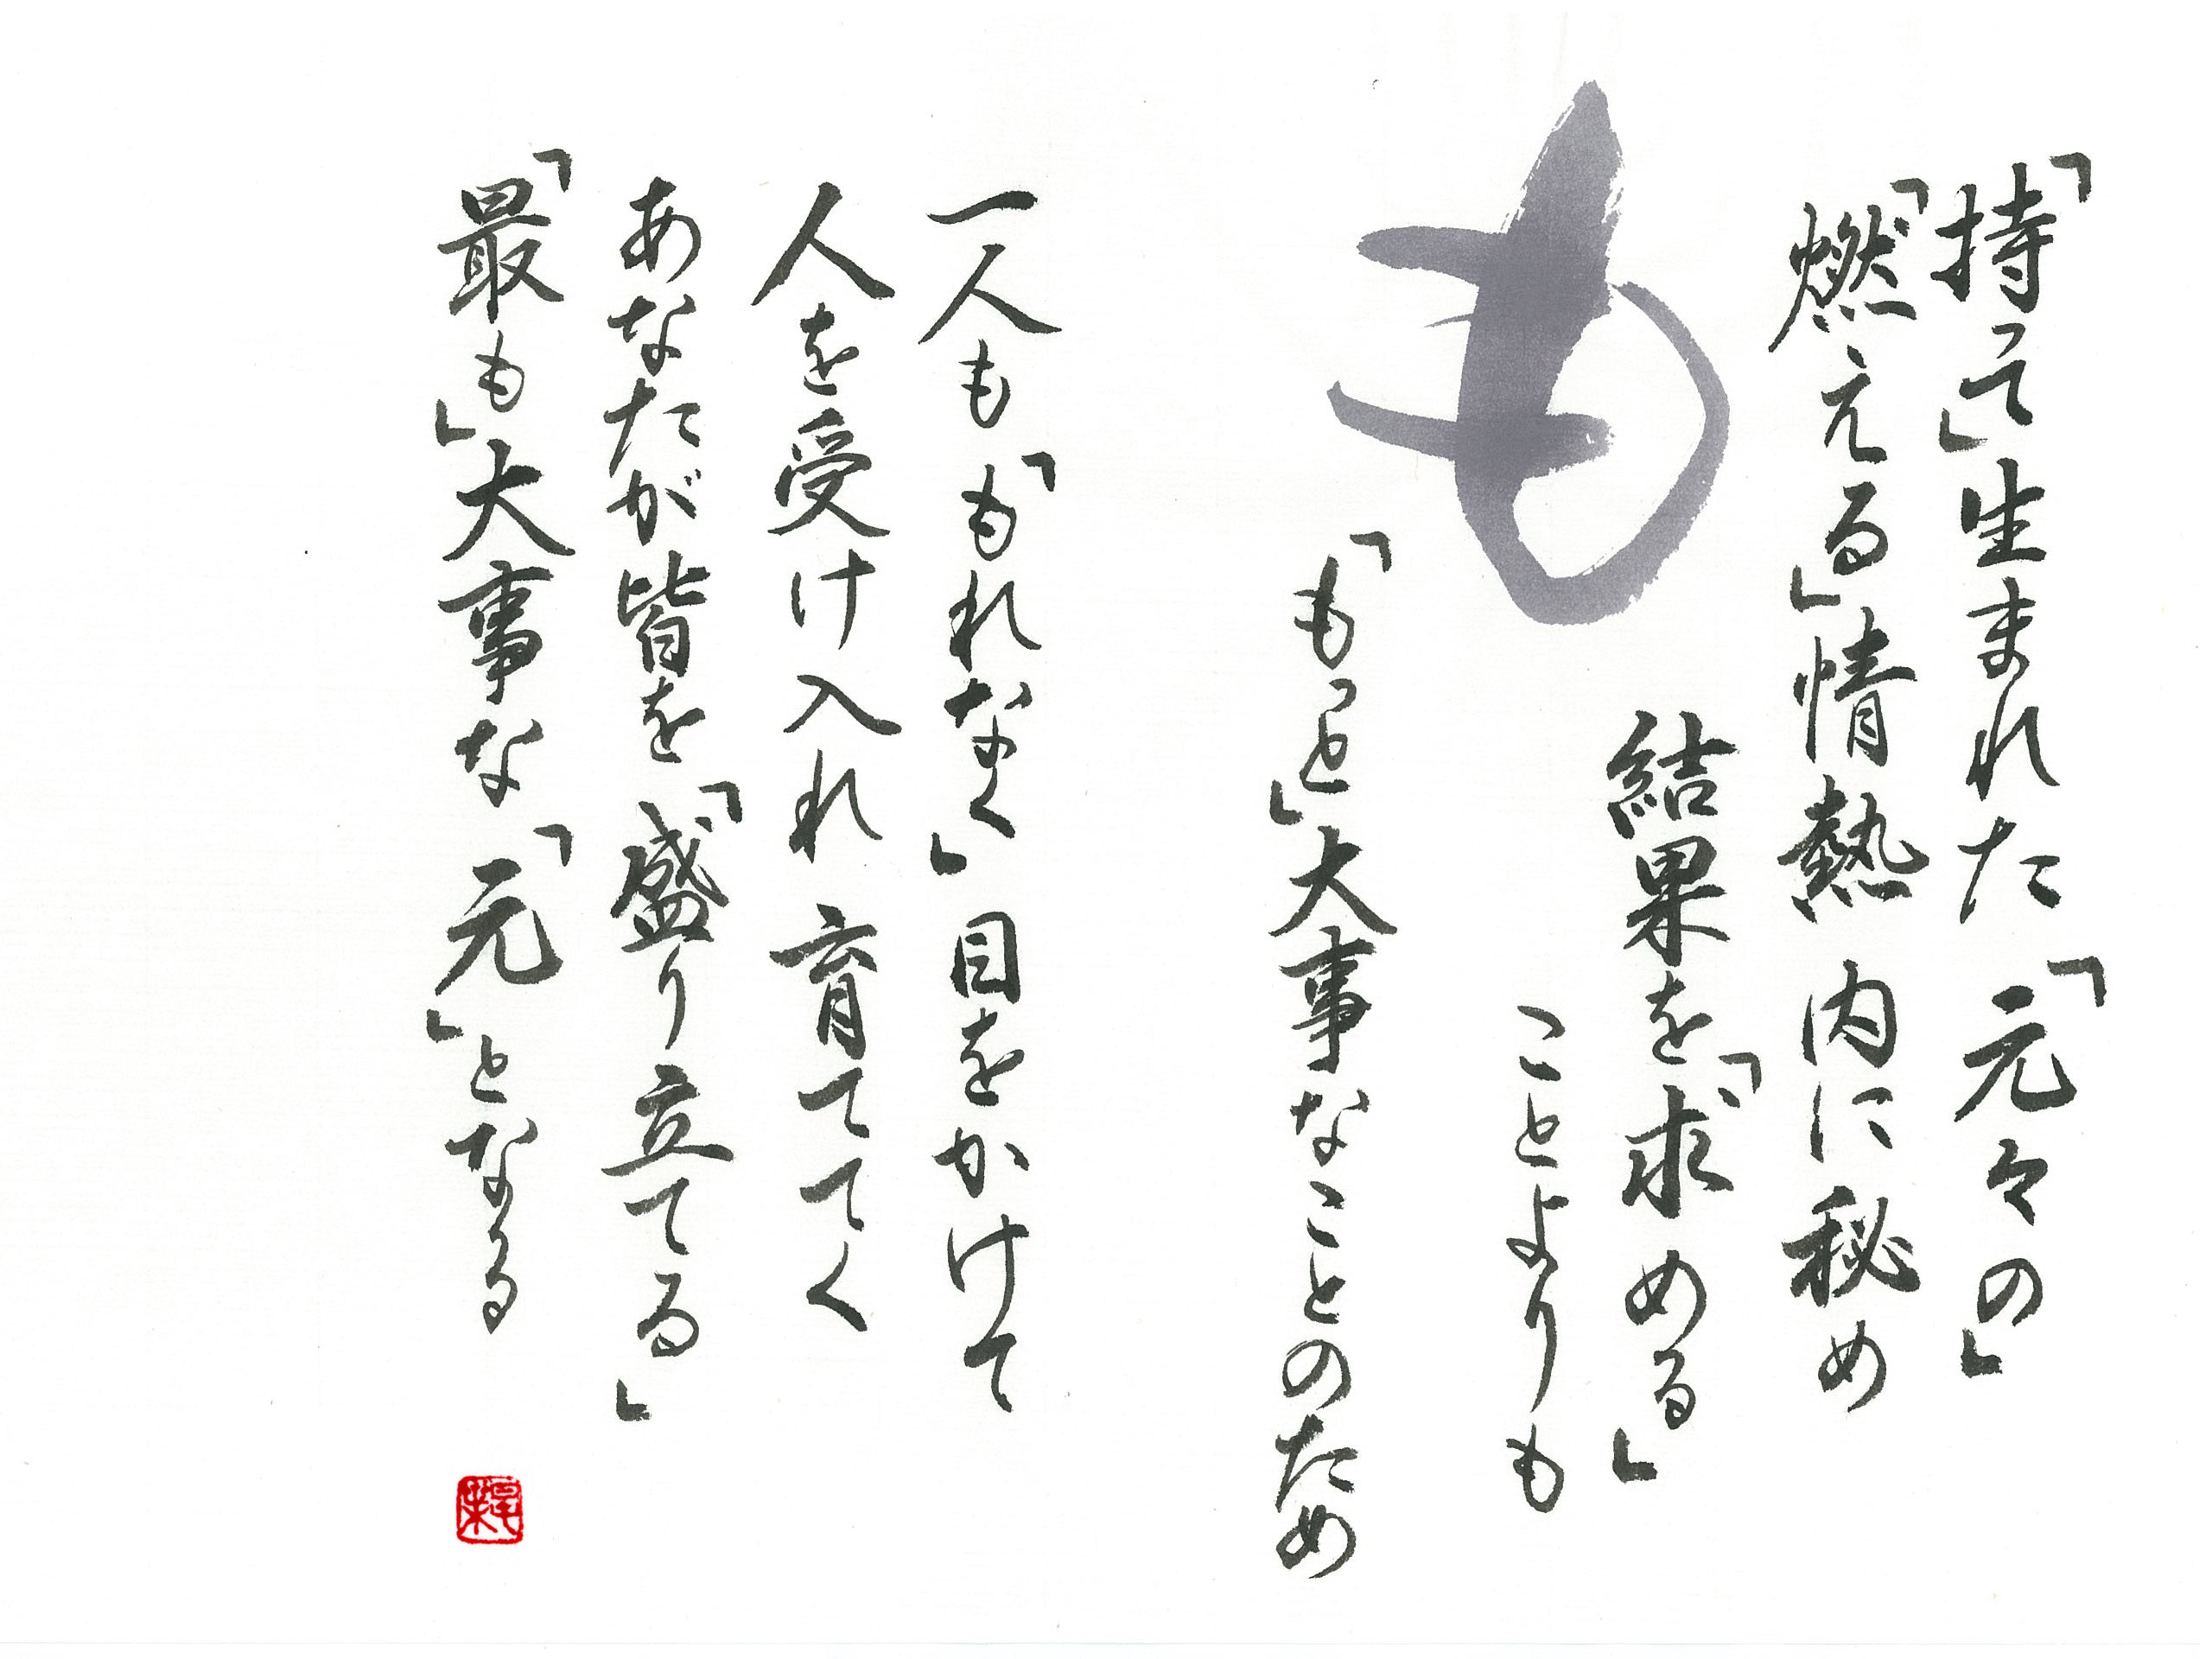 「持って」生まれた「元々の」
「燃える」情熱 内に秘め
も
結果を「求める」
ことよりも
「もっと」大事なことのため
一人も「もれなく」目をかけて
人を受け入れ 育ててく
あなたが皆を「盛り立てる」
「最も」大事な「元」となる